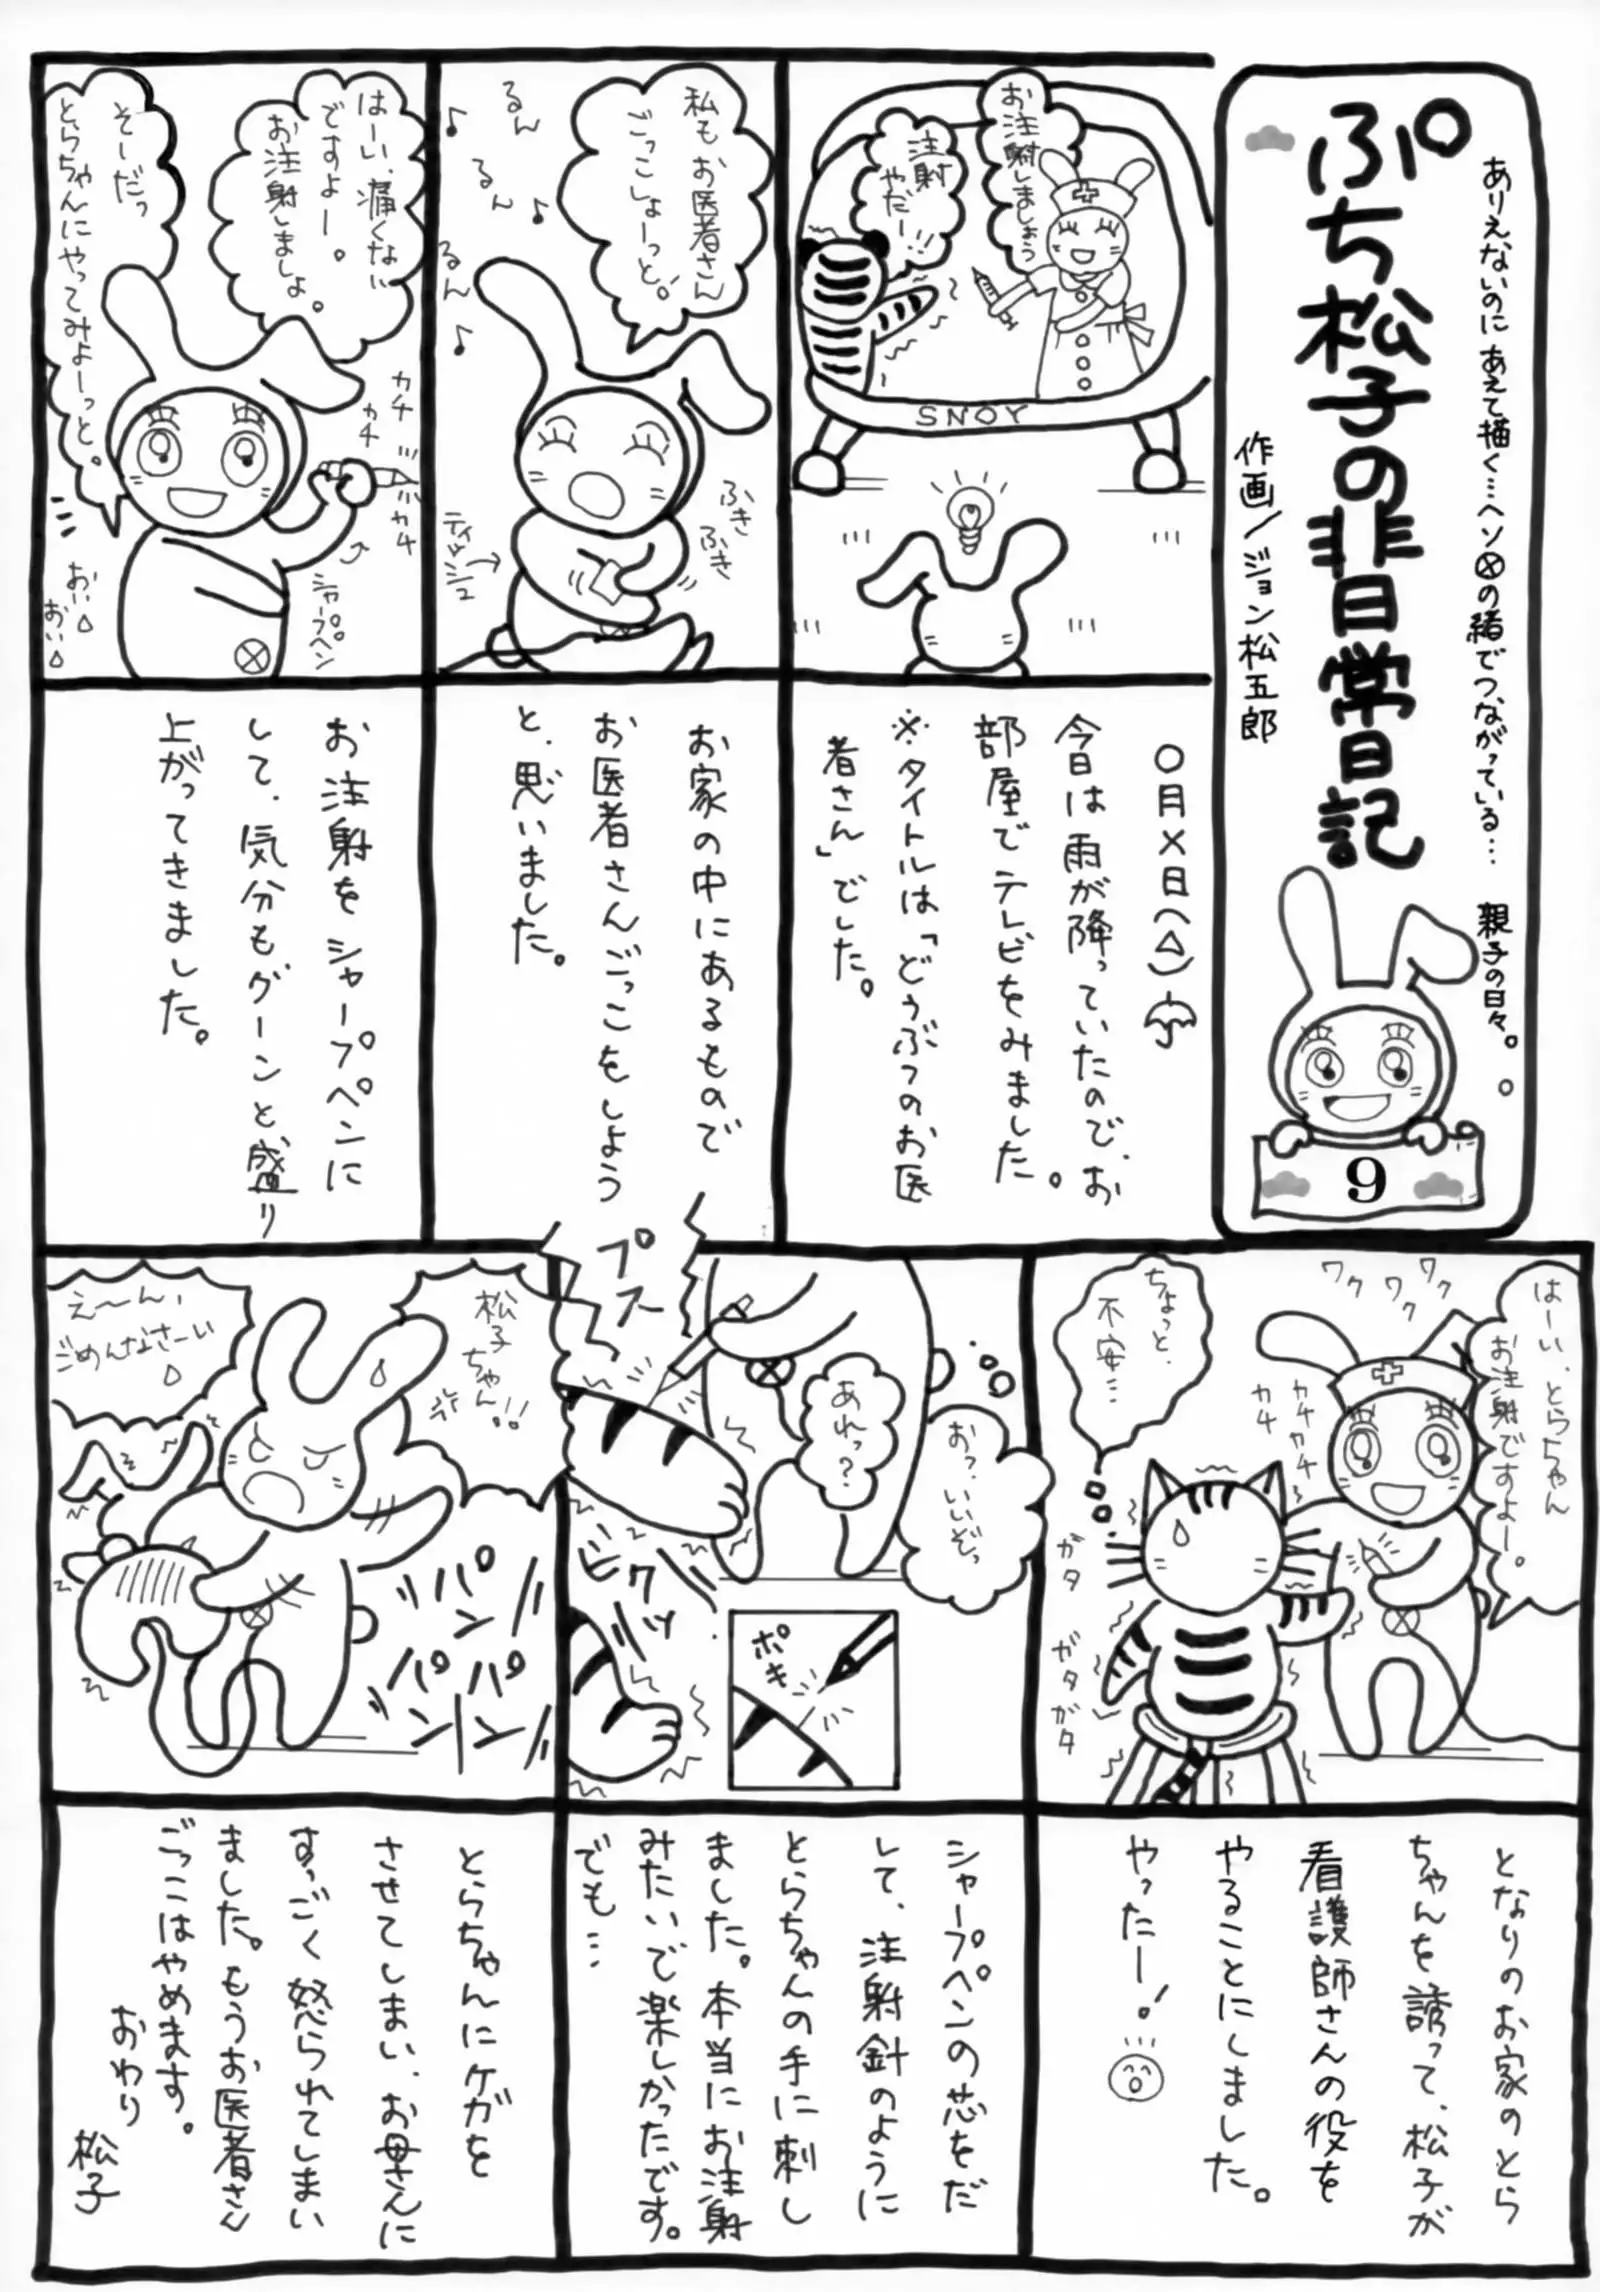 ありえないのにあえて描く…ヘソⓧの緒でつながっている… 親子の日々。
ぷち松子の非日常日記
作画/ジョン松五郎
9
お注射しましょう
注射
やだー!!
SNOY
〇月×日(△)
今日は雨が降っていたので、お
部屋でテレビをみました。
※タイトルは「どうぶつのお医
者さん」でした。
私もお医者さん
ごっこしよーっと。
るん
るん
るん
ふき
ふき
ティッシュ→
お家の中にあるもので
お医者さんごっこをしよう
と、思いました。
はーい、痛くない
ですよー。
お注射しましょ。
そーだっ
とらちゃんにやってみよーっと。
カチ
カチ
カチ
シャープペン
おい
おい
お注射をシャープペンに
して、気分もグーンと盛り
上がってきました。
はーい、とらちゃん
お注射ですよー。
ワク
ワク
ワク
カチ
カチ
カチ
カチ
ちょっと、
不安…
ガタ
ガタ
ガタ
となりのお家のとら
ちゃんを誘って、松子が
看護師さんの役を
やることにしました。
やったー!
おっ、いいぞっ
あれっ?
プスー
ビクッ
ポキ
シャープペンの芯をだ
して、注射針のように
とらちゃんの手に刺し
ました。本当にお注射
みたいで楽しかったです。
でも…
松子ちゃん!!
え〜ん、
ごめんなさーい
パン
パン
パン
とらちゃんにケガを
させてしまい、お母さんに
すっごく怒られてしまい
ました。もうお医者さん
ごっこはやめます。
おわり
松子